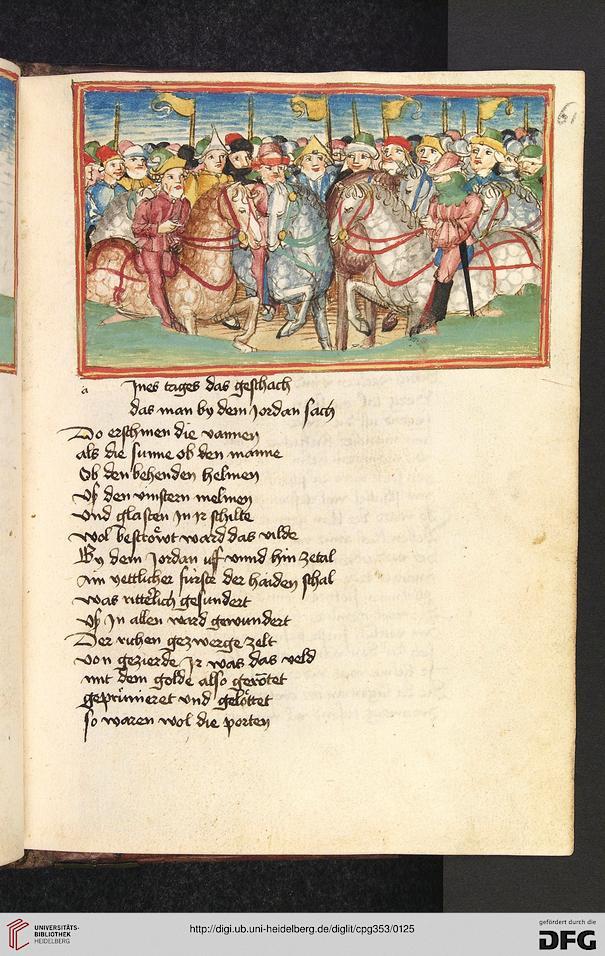 61
a Ines tages das geschach
das man by dem Jordan sach
Do erschinen die vannen
als die sunne ob den manne
Ob den behenden helmen
Vß den vinstern melmen
Vnd glasten In Ir schilte
wol bestrowt ward das vilde
By dem Jordan uff vnnd hin zetal
Im yettlicher fürste der haiden schal
was ritterlich gesundert
Vß In allen ward gewundert
Der richen gezwerge zelt
von gezierde Ir was das veld
mit dem golde also gerötet
geprüuieret vnd gelöttet
so waren wol die porten
UNIVERSITÄTS-
BIBLIOTHEK
HEIDELBERG
http://digi.ub.uni-heidelberg.de/diglit/cpg353/0125
gefördert durch die
DFG